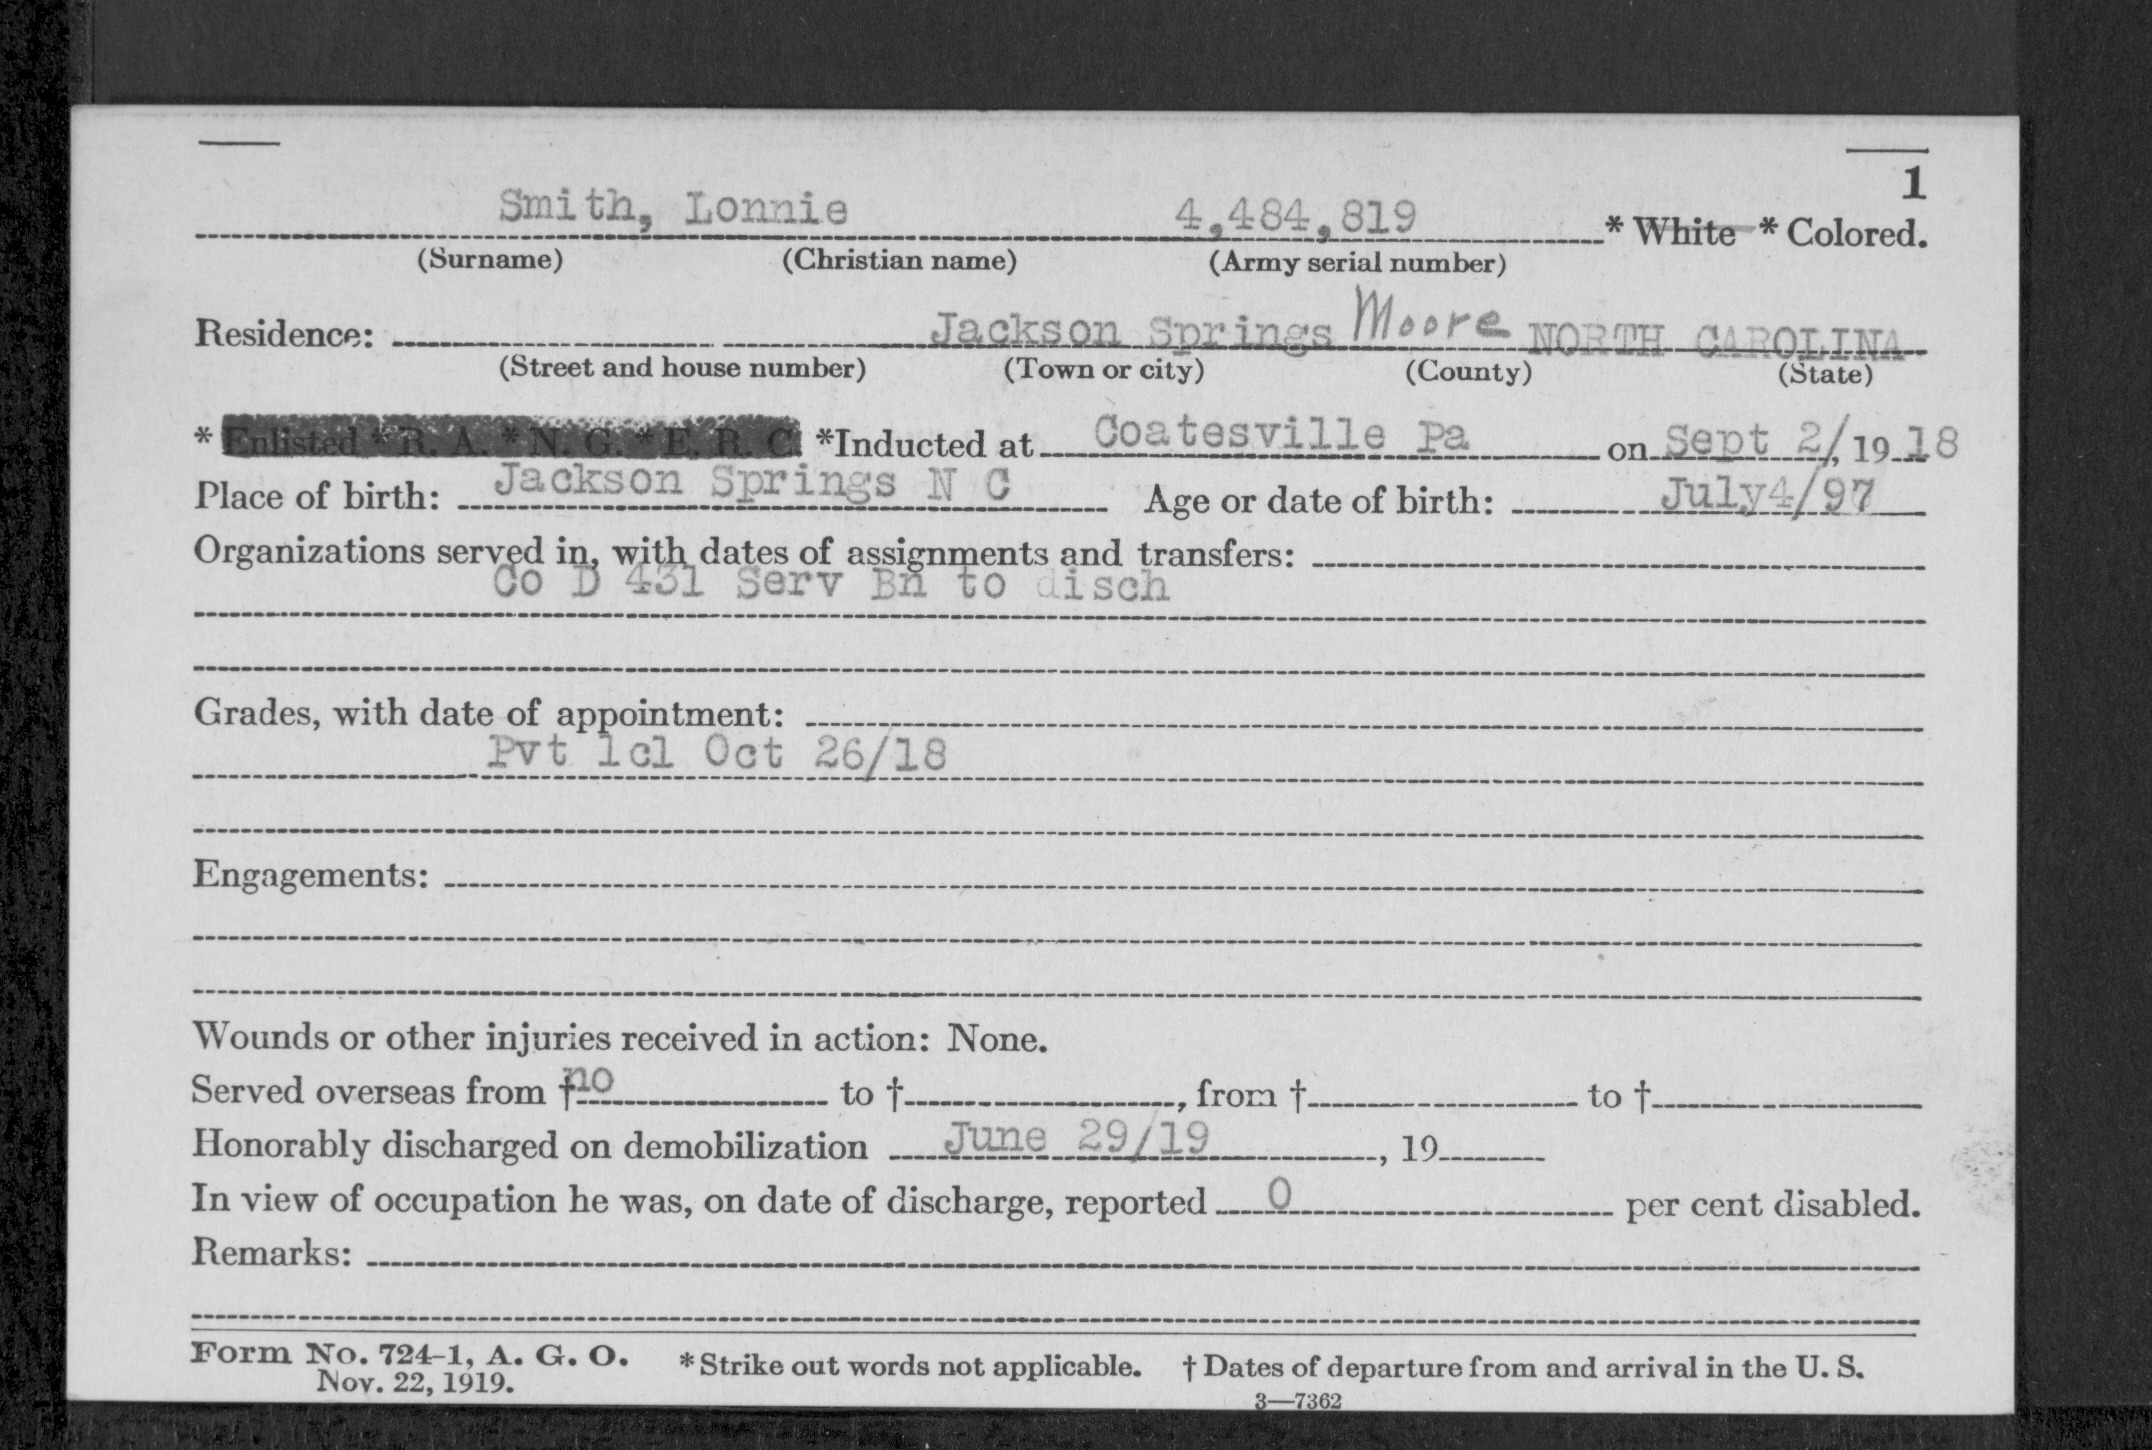 1
Smith, Lonnie 4,484,819 * White * Colored.
(Surname) (Christian name) (Army serial number)
Residence: Jackson Springs Moore NORTH CAROLINA
(Street and house number) (Town or city) (County) (State)
* Enlisted * R. A. * N. G. * E. R. C. *Inducted at Coatesville Pa on Sept 2/, 19 18
Place of birth: Jackson Springs N C Age or date of birth: July4/97
Organizations served in, with dates of assignments and transfers:
Co D 431 Serv Bn to disch
Grades, with date of appointment:
Pvt 1cl Oct 26/18
Engagements:
Wounds or other injuries received in action: None.
Served overseas from † no to †, from † to †
Honorably discharged on demobilization June 29/19, 19
In view of occupation he was, on date of discharge, reported 0 per cent disabled.
Remarks:
Form No. 724-1, A. G. O. * Strike out words not applicable. † Dates of departure from and arrival in the U. S.
Nov. 22, 1919.
3—7362